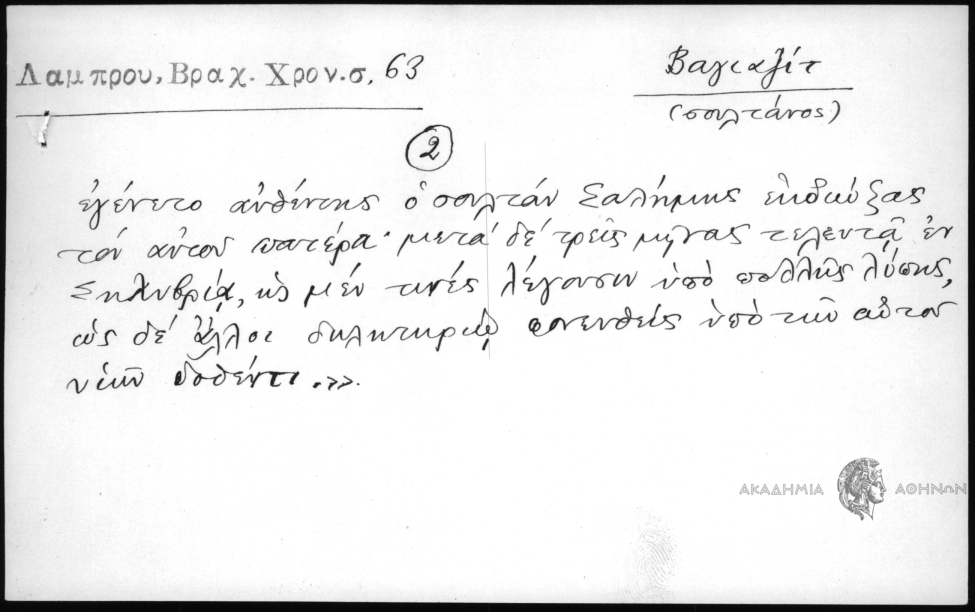 Λαμπρου, Βραχ. Χρον. σ. 63
Βαγιαζίτ
(σουλτάνος)
2
ἐγένετο αὐθέντης ὁ σουλτάν Σαλήμης ἐκδιώξας
τόν αὐτοῦ πατέρα· μετά δέ τρεῖς μῆνας τελευτᾷ ἐν
Σηλυβρίᾳ, ὡς μέν τινές λέγουσιν ὑπό πολλῆς λύπης,
ὡς δέ ἄλλοι δηλητηρίῳ φονευθείς ὑπό τῶν αὐτοῦ
υἱῶν δοθέντι.»
ΑΚΑΔΗΜΙΑ ΑΘΗΝΩΝ